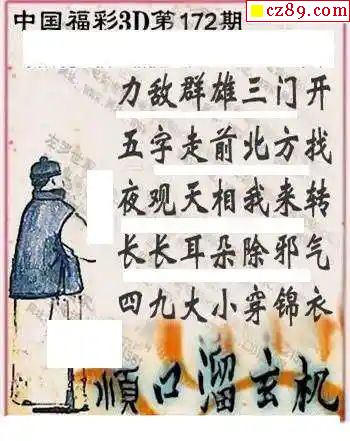 cz89.com
中国福彩3D第172期
力敌群雄三门开
五字走前北方找
夜观天相我来转
长长耳朵除邪气
四九大小穿锦衣
顺口溜玄机